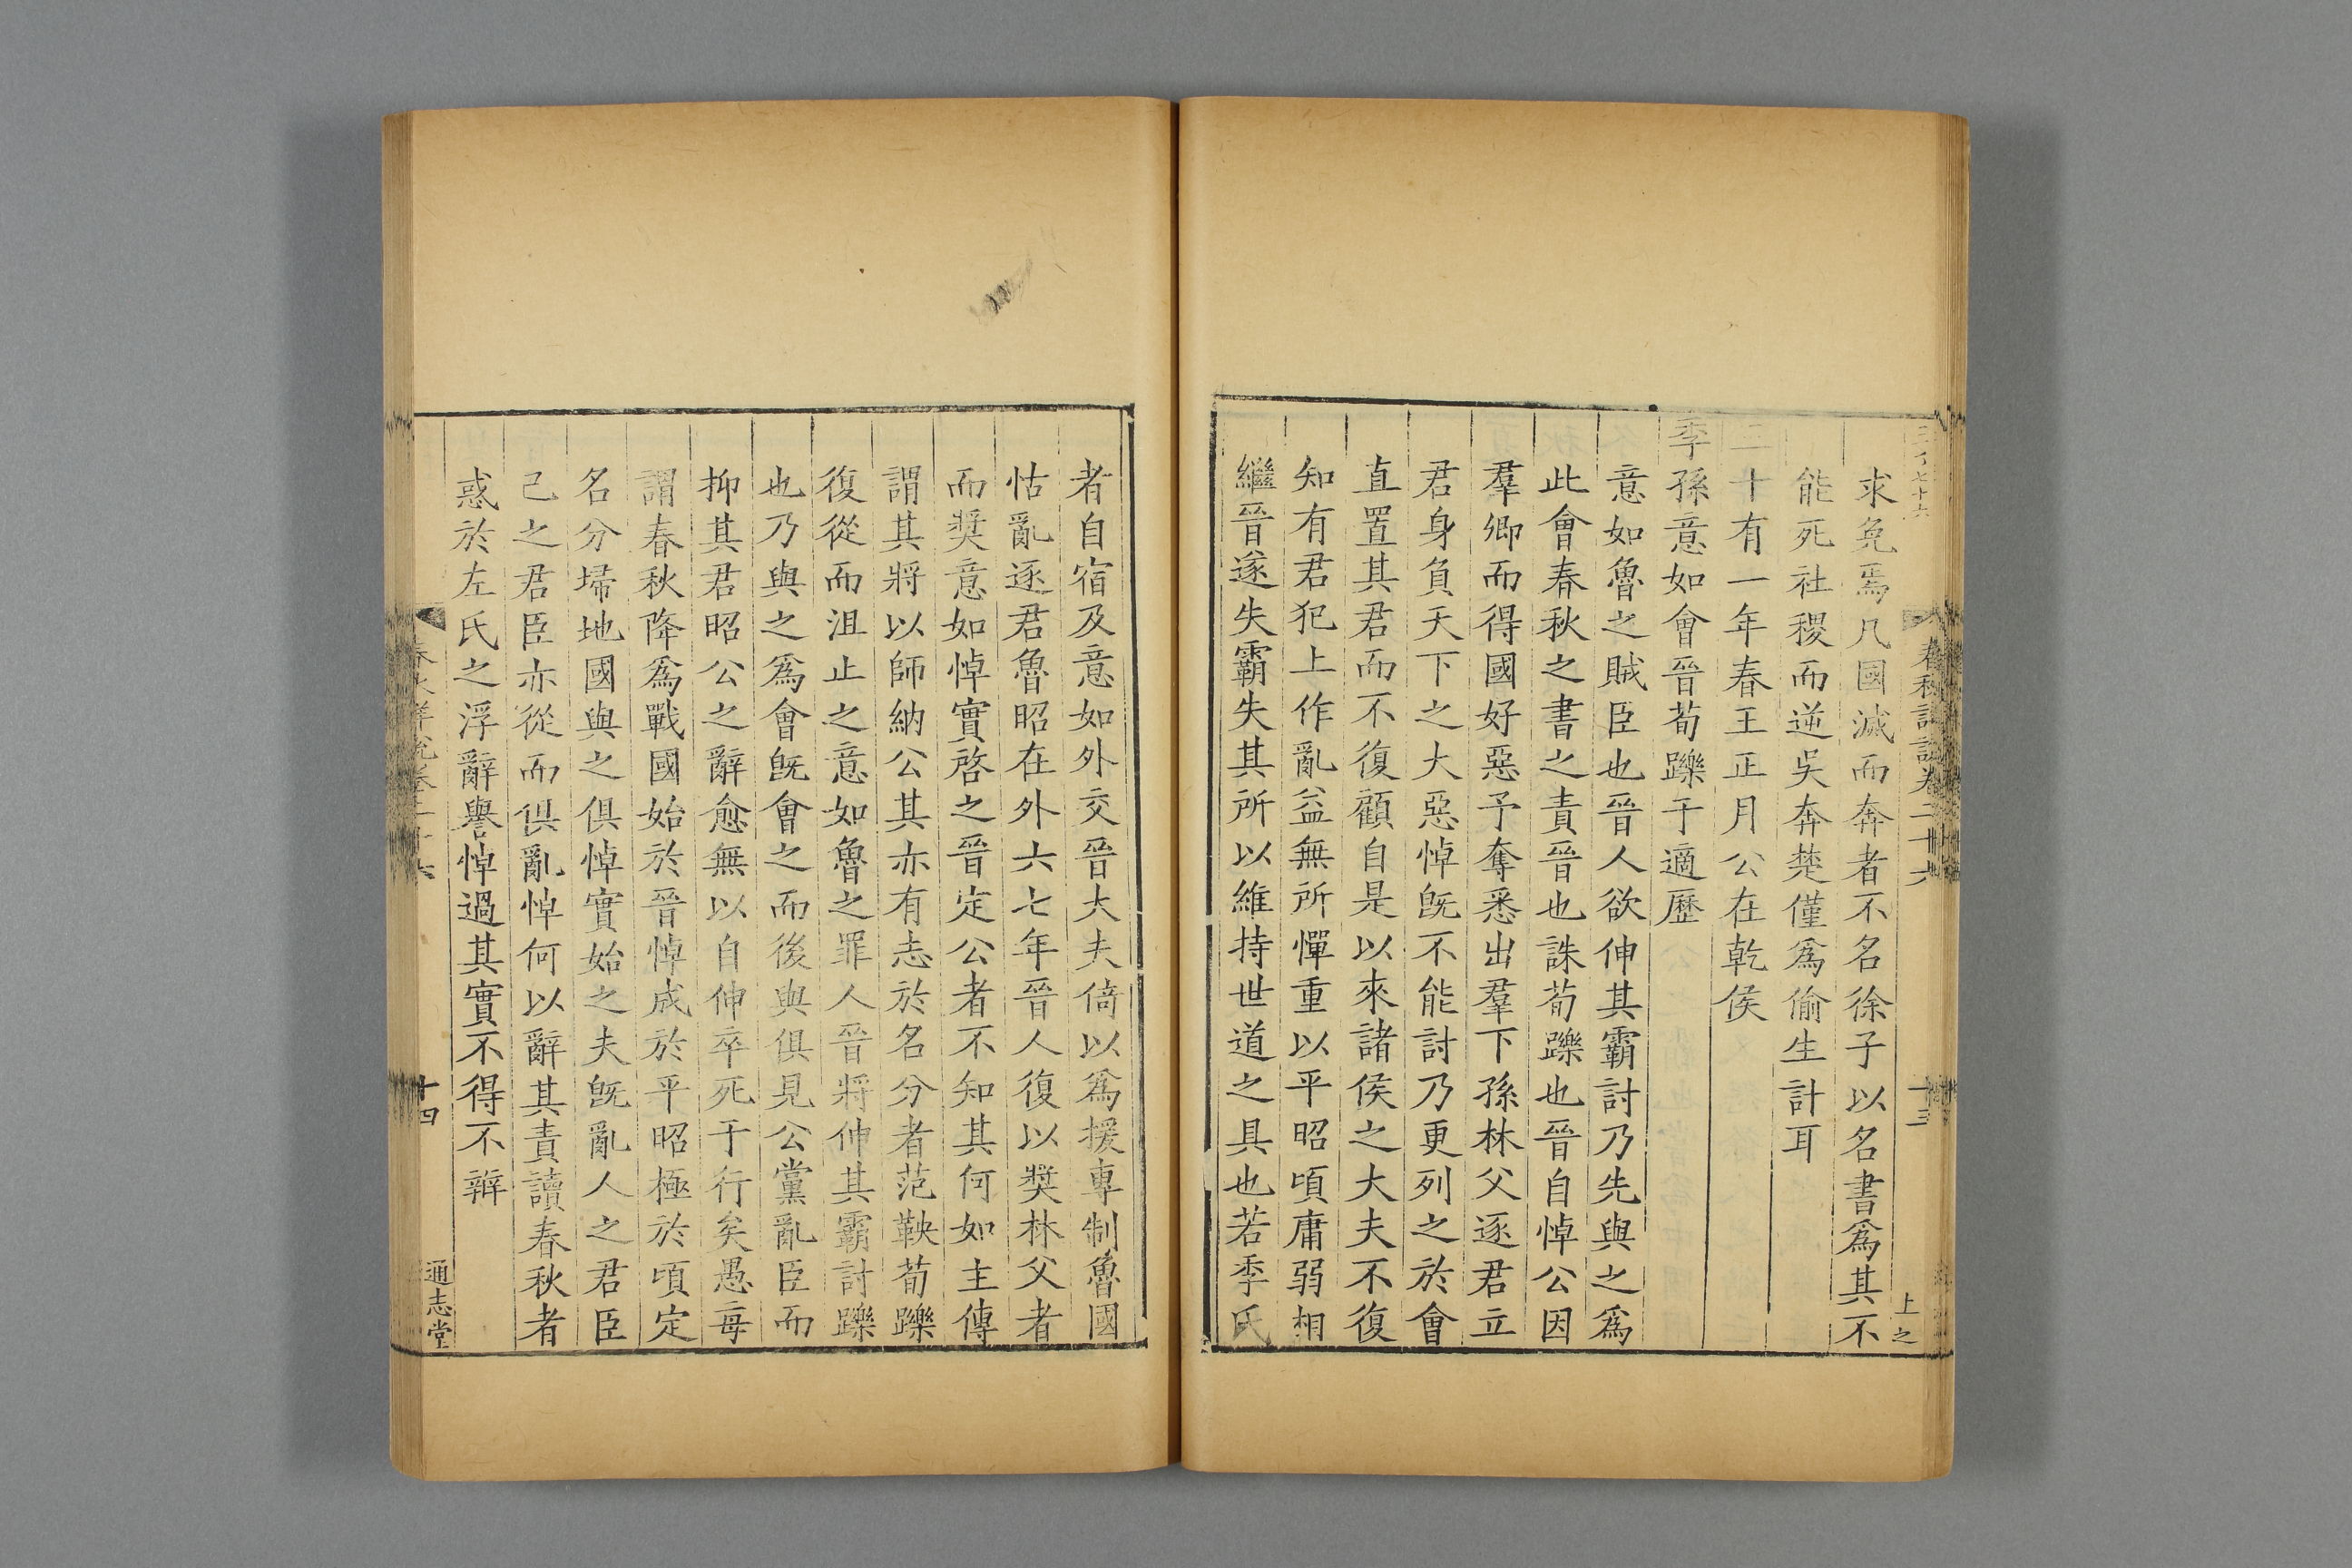 求免焉凡國滅而奔者不名徐子以名書爲其不
能死社稷而逆吳奔楚僅爲偷生計耳
三十有一年春王正月公在乾侯
季孫意如會晉荀躒于適歷
意如魯之賊臣也晉人欲伸其霸討乃先與之爲
此會春秋之書之責晉也誅荀躒也晉自悼公因
羣卿而得國好惡予奪悉出羣下孫林父逐君立
君身負天下之大惡悼旣不能討乃更列之於會
直置其君而不復顧自是以來諸侯之大夫不復
知有君犯上作亂益無所憚重以平昭頃庸弱相
繼晉遂失霸失其所以維持世道之具也若季氏
春秋詳說卷二十六
十三
上之
者自宿及意如外交晉大夫倚以爲援專制魯國
怙亂逐君魯昭在外六七年晉人復以奬林父者
而奬意如悼實啓之晉定公者不知其何如主傳
謂其將以師納公其亦有志於名分者范鞅荀躒
復從而沮止之意如魯之罪人晉將伸其霸討躒
也乃與之爲會旣會之而後與俱見公黨亂臣而
抑其君昭公之辭愈無以自伸卒死于行矣愚每
謂春秋降爲戰國始於晉悼成於平昭極於頃定
名分埽地國與之俱悼實始之夫旣亂人之君臣
己之君臣亦從而俱亂悼何以辭其責讀春秋者
惑於左氏之浮辭譽悼過其實不得不辯
春秋詳說卷二十六
十四
通志堂